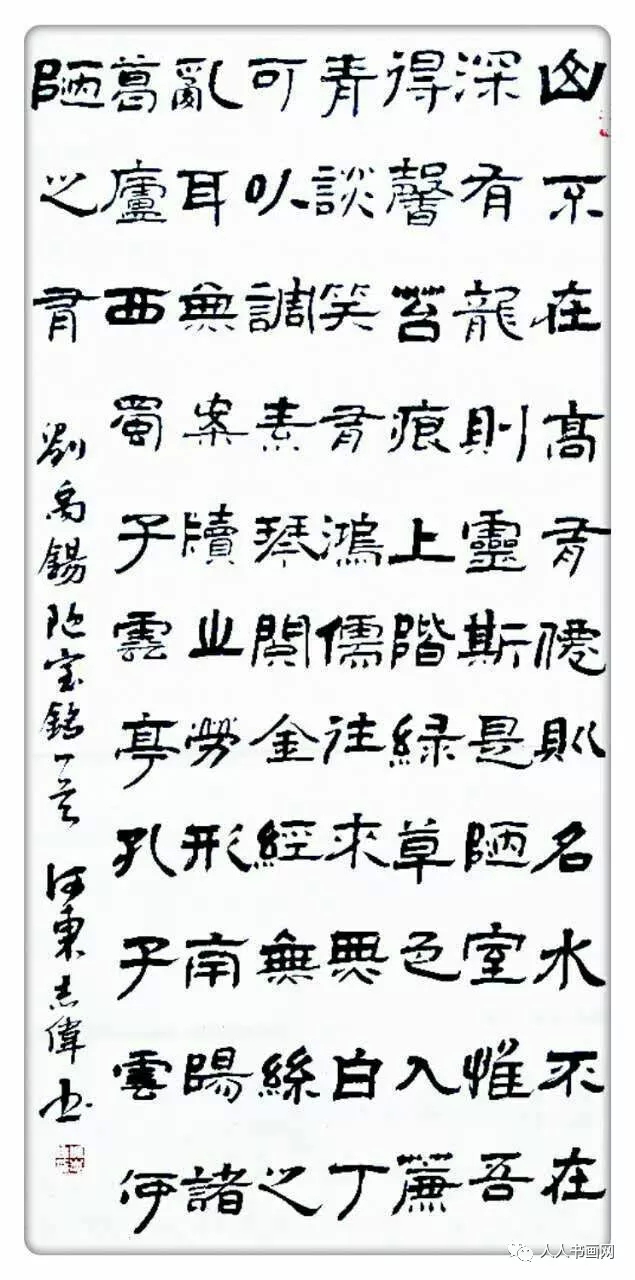 山不在高有僊則名水不在
深有龍則靈斯是陋室惟吾
得馨苔痕上階緑草色入簾
青談笑有鴻儒往來無白丁
可以調素琴閲金經無絲之
亂耳無案牘之勞形南陽諸
葛廬西蜀子雲亭孔子雲何
陋之有
劉禹錫陋室銘一首 河東志偉书
人人书画网